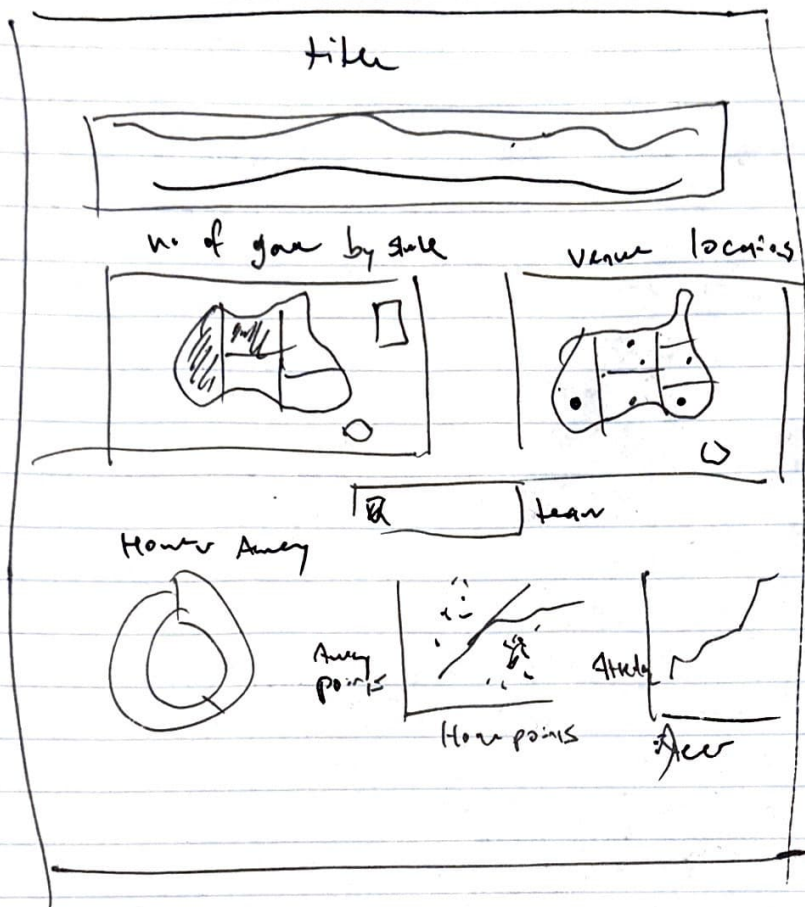 title
no of game by state
venue locations
team
Home v Away
Away
points
Home points
Year